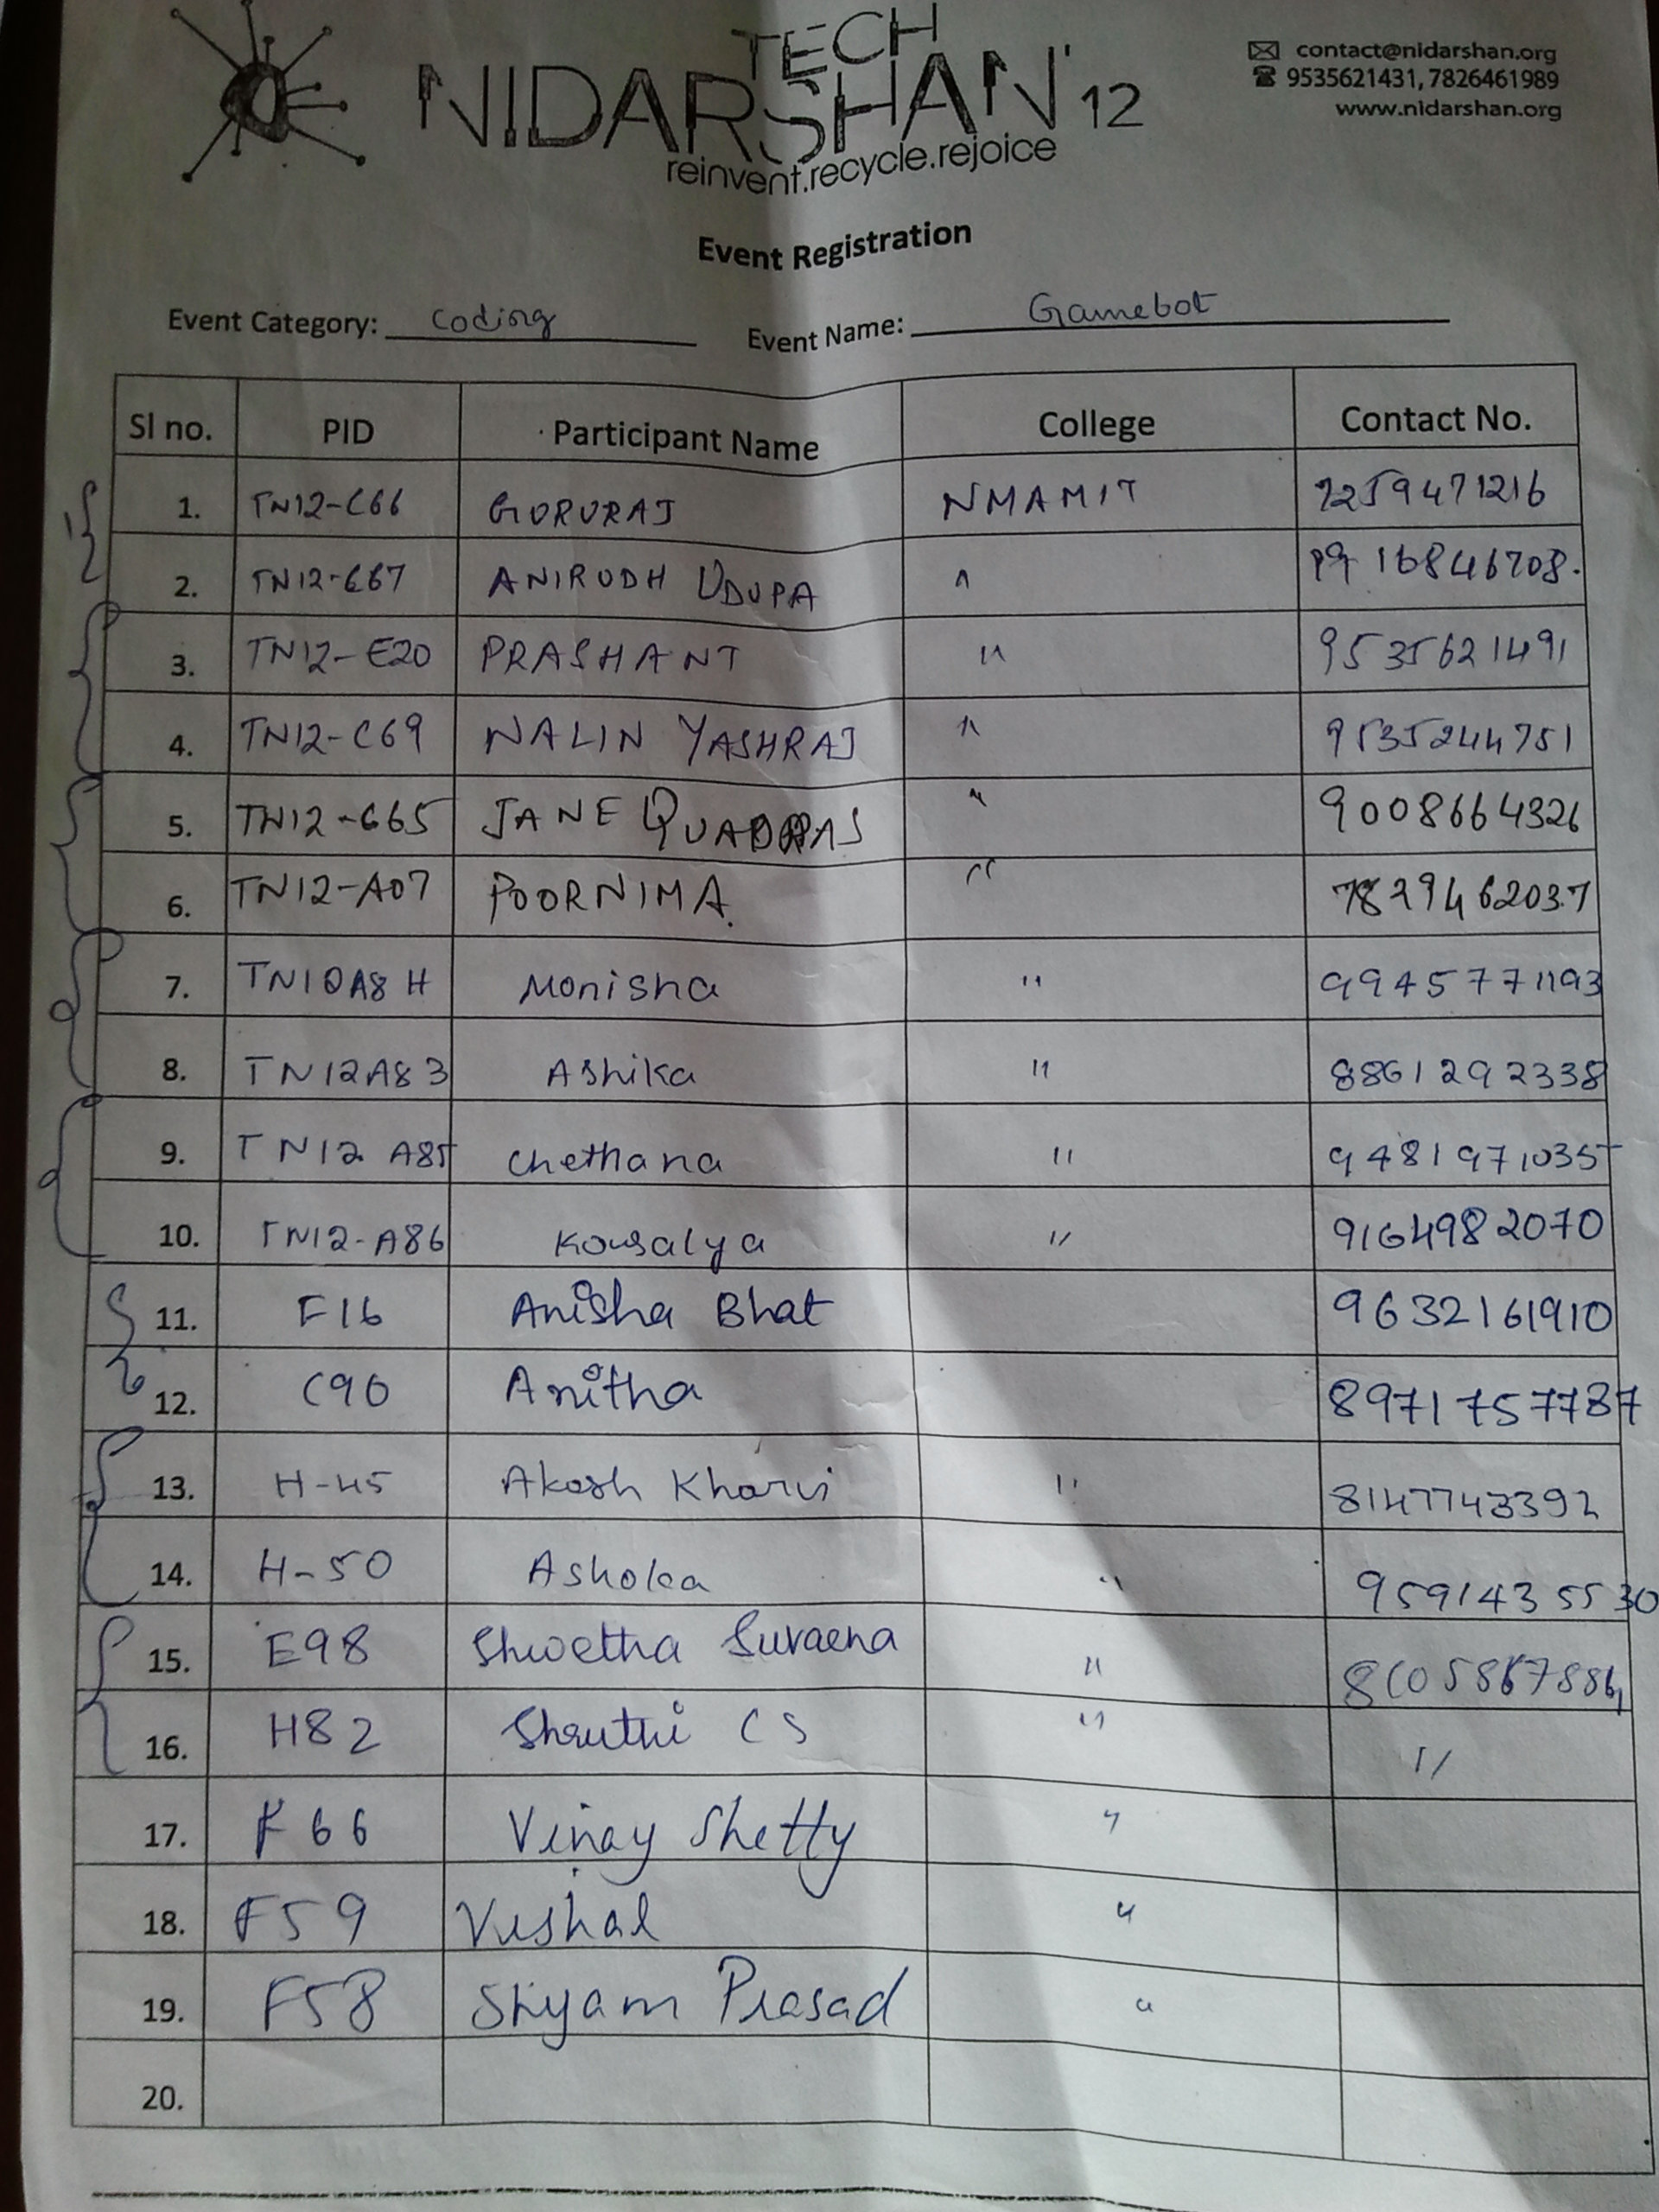 TECH
NIDARSHAN'12
reinvent.recycle.rejoice
contact@nidarshan.org
9535621431, 7826461989
www.nidarshan.org
Event Registration
Event Category: Coding Event Name: Gamebot
Sl no. PID Participant Name College Contact No.
1. TN12-C66 GURURAJ NMAMIT 7259471216
2. TN12-C67 ANIRUDH UDUPA " 16846708.
3. TN12-E20 PRASHANT " 9535621491
4. TN12-C69 NALIN YASHRAJ " 9535244751
5. TN12-C65 JANE QUADRAS " 9008664326
6. TN12-A07 POORNIMA. " 7829462037
7. Monisha " 9945771193
8. TN12A83 Ashika " 8861292338
9. TN12 A85 Chethana " 9481971035
10. TN12-A86 Kousalya " 9164982070
11. F16 Anisha Bhat 9632161910
12. C90 Anitha 8971757787
13. H-45 Akash Kharvi " 8147743392
14. H-50 Ashoka " 9591435530
15. E98 Shwetha Suvarna "
16. H82 Shruthi CS " "
17. F66 Vinay Shetty "
18. F59 Vishal "
19. F58 Shyam Prasad "
20.